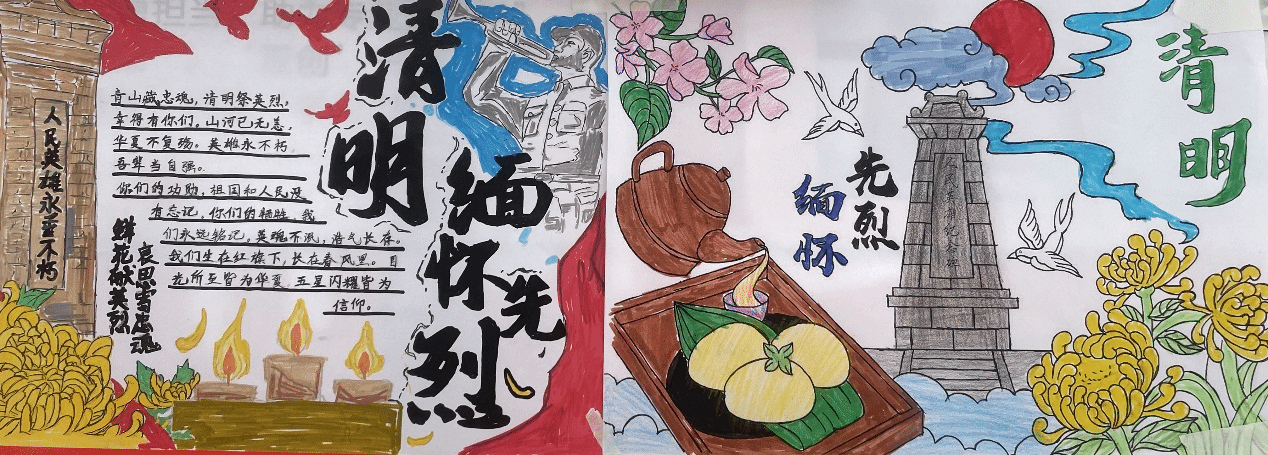 人民英雄永垂不朽
青山藏忠魂，清明祭英烈，
幸得有你们，山河已无恙，
华夏不复殇。英雄永不朽
吾辈当自强。
你们的功勋，祖国和人民没
有忘记，你们的牺牲，我
们永远铭记，英魂不泯，浩气长存。
我们生在红旗下，长在春风里。目
光所至皆为华夏，五星闪耀皆为
信仰。
鲜花献英烈
哀思寄忠魂
清明
缅怀先烈
缅怀
先烈
清明